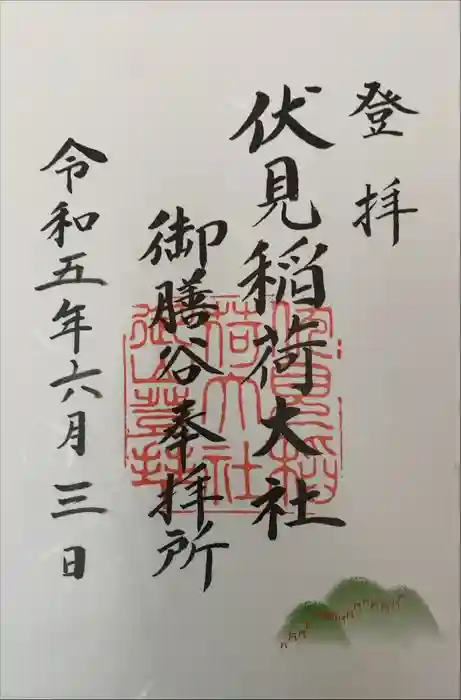 登拝
伏見稲荷大社
御膳谷奉拝所
令和五年六月三日